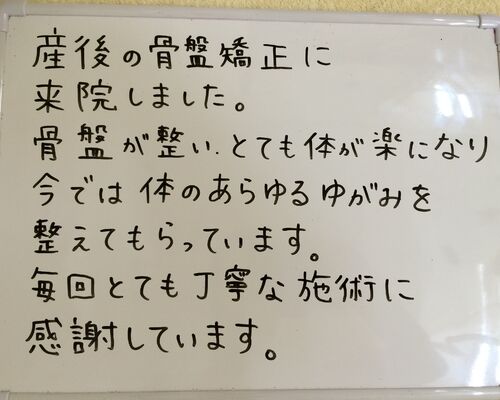 産後の骨盤矯正に
来院しました。
骨盤が整い、とても体が楽になり
今では体のあらゆるゆがみを
整えてもらっています。
毎回とても丁寧な施術に
感謝しています。